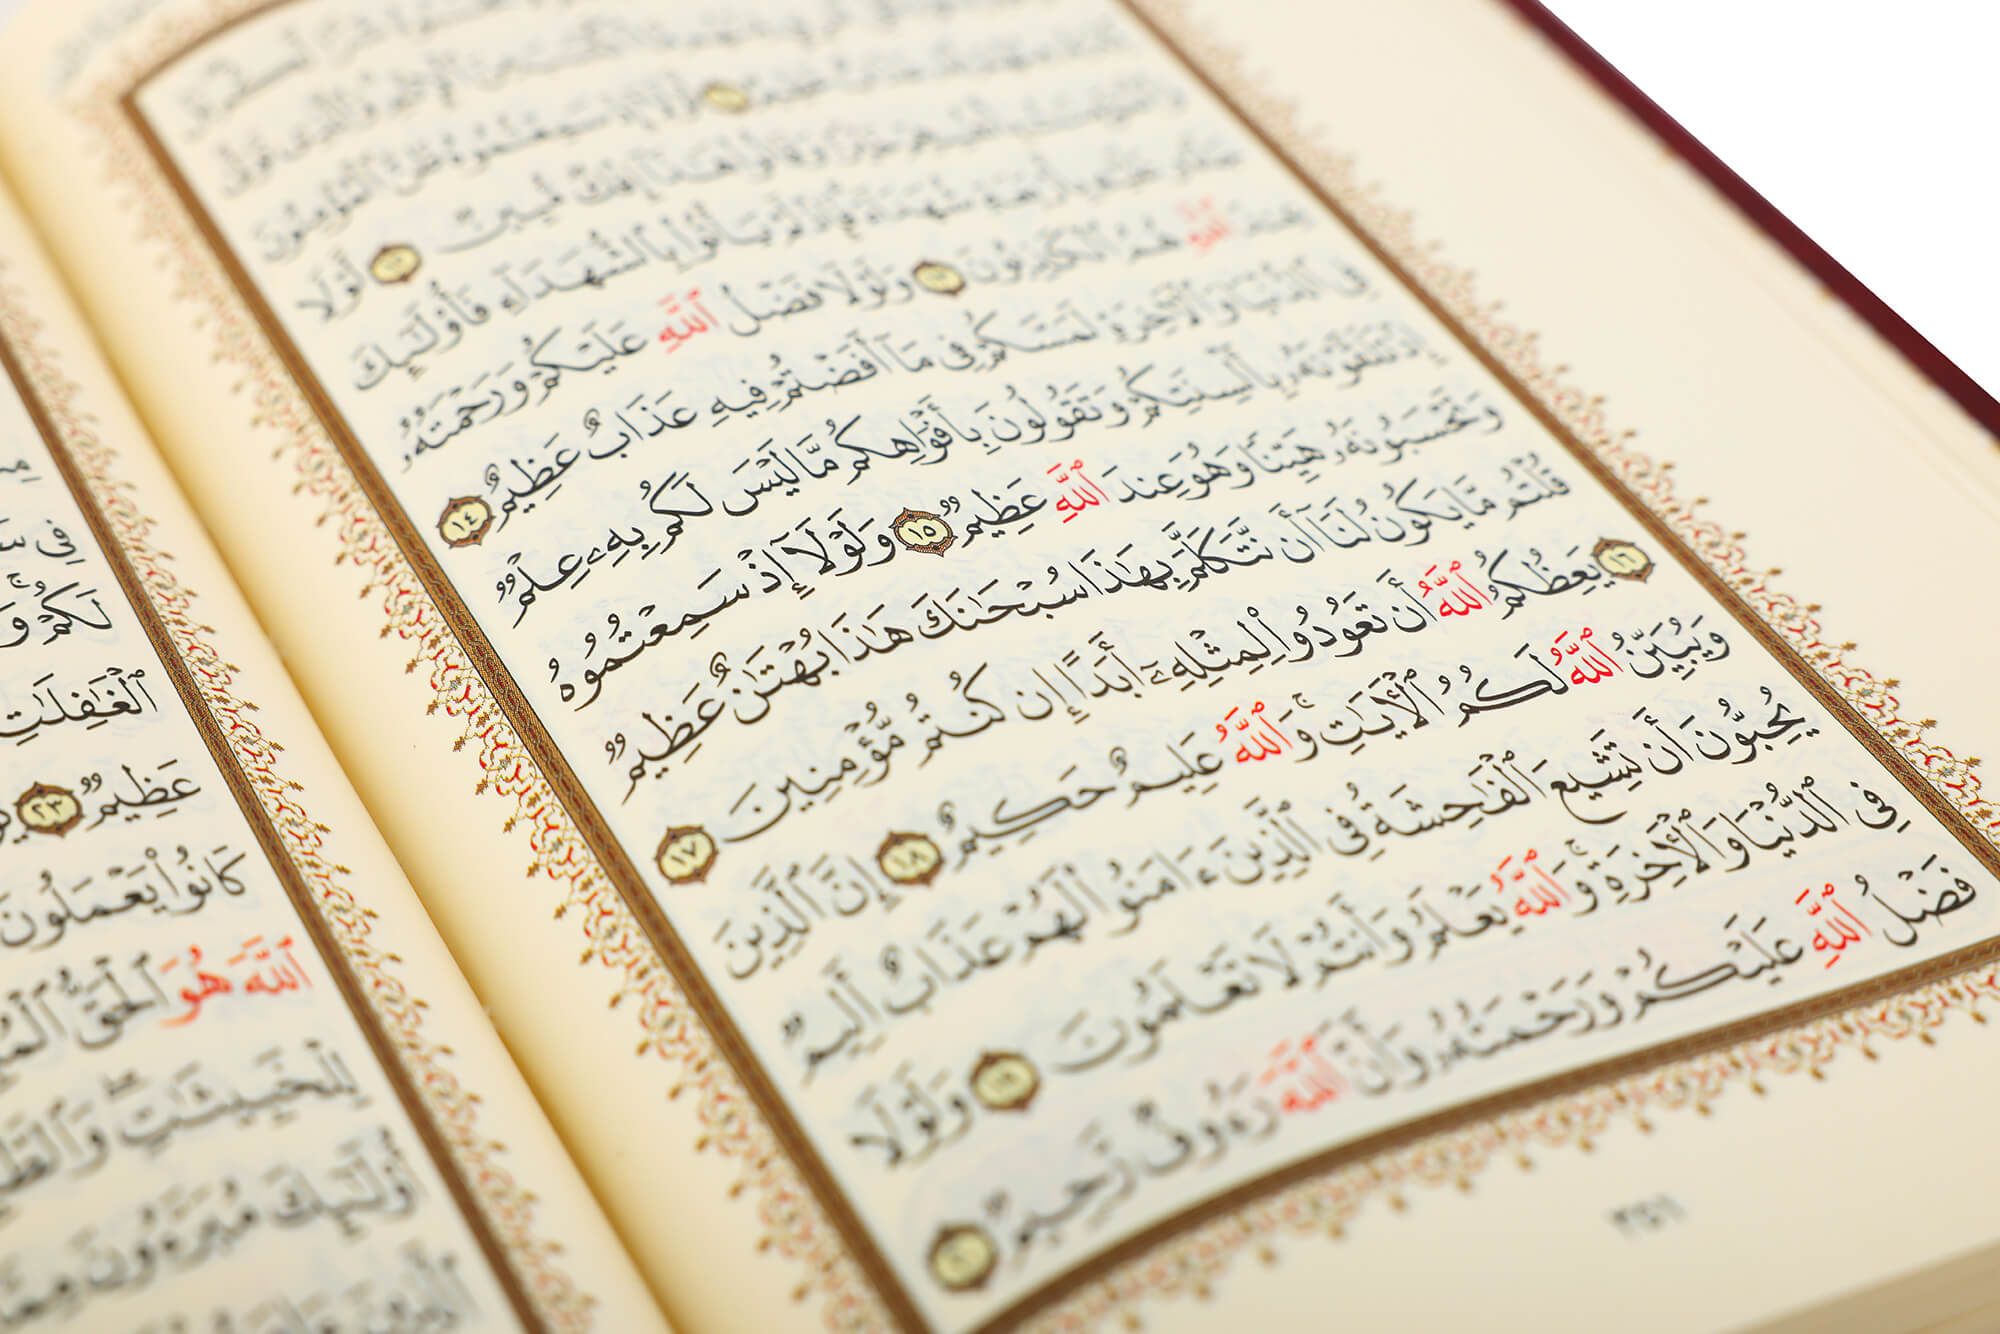 ظَنَّ ٱلْمُؤْمِنُونَ
خَيْرًا وَقَالُوا۟ هَٰذَآ إِفْكٌ مُّبِينٌ ١٢ لَّوْلَا
بِأَرْبَعَةِ شُهَدَآءَ فَإِذْ لَمْ يَأْتُوا۟ بِٱلشُّهَدَآءِ فَأُو۟لَٰٓئِكَ
عِندَ ٱللَّهِ هُمُ ٱلْكَٰذِبُونَ ١٣ وَلَوْلَا فَضْلُ ٱللَّهِ عَلَيْكُمْ وَرَحْمَتُهُۥ
فِى ٱلدُّنْيَا وَٱلْءَاخِرَةِ لَمَسَّكُمْ فِى مَآ أَفَضْتُمْ فِيهِ عَذَابٌ عَظِيمٌ ١٤
إِذْ تَلَقَّوْنَهُۥ بِأَلْسِنَتِكُمْ وَتَقُولُونَ بِأَفْوَاهِكُم مَّا لَيْسَ لَكُم بِهِۦ عِلْمٌ
وَتَحْسَبُونَهُۥ هَيِّنًا وَهُوَ عِندَ ٱللَّهِ عَظِيمٌ ١٥ وَلَوْلَآ إِذْ سَمِعْتُمُوهُ
قُلْتُم مَّا يَكُونُ لَنَآ أَن نَّتَكَلَّمَ بِهَٰذَا سُبْحَٰنَكَ هَٰذَا بُهْتَٰنٌ عَظِيمٌ
١٦ يَعِظُكُمُ ٱللَّهُ أَن تَعُودُوا۟ لِمِثْلِهِۦٓ أَبَدًا إِن كُنتُم مُّؤْمِنِينَ ١٧
وَيُبَيِّنُ ٱللَّهُ لَكُمُ ٱلْءَايَٰتِ ۚ وَٱللَّهُ عَلِيمٌ حَكِيمٌ ١٨ إِنَّ ٱلَّذِينَ
يُحِبُّونَ أَن تَشِيعَ ٱلْفَٰحِشَةُ فِى ٱلَّذِينَ ءَامَنُوا۟ لَهُمْ عَذَابٌ أَلِيمٌ
فِى ٱلدُّنْيَا وَٱلْءَاخِرَةِ ۚ وَٱللَّهُ يَعْلَمُ وَأَنتُمْ لَا تَعْلَمُونَ ١٩ وَلَوْلَا
فَضْلُ ٱللَّهِ عَلَيْكُمْ وَرَحْمَتُهُۥ وَأَنَّ ٱللَّهَ رَءُوفٌ رَّحِيمٌ ٢٠
٣٥١
لَكُمْ ۗ وَ
ٱلْغَٰفِلَٰتِ
عَظِيمٌ ٢٣
كَانُوا۟ يَعْمَلُونَ
ٱللَّهَ هُوَ ٱلْحَقُّ
لِلْخَبِيثَٰتِ ۖ
أُو۟لَٰٓئِكَ مُبَرَّءُونَ مِمَّا